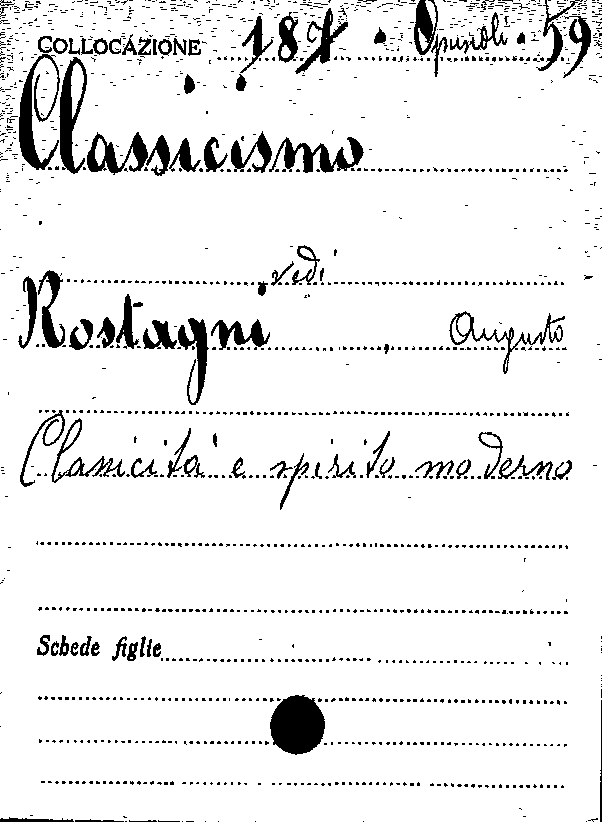 COLLOCAZIONE 187 . Opuscoli . 59
Classicismo
vedi
Rostagni , Augusto
Classicità e spirito moderno
Schede figlie